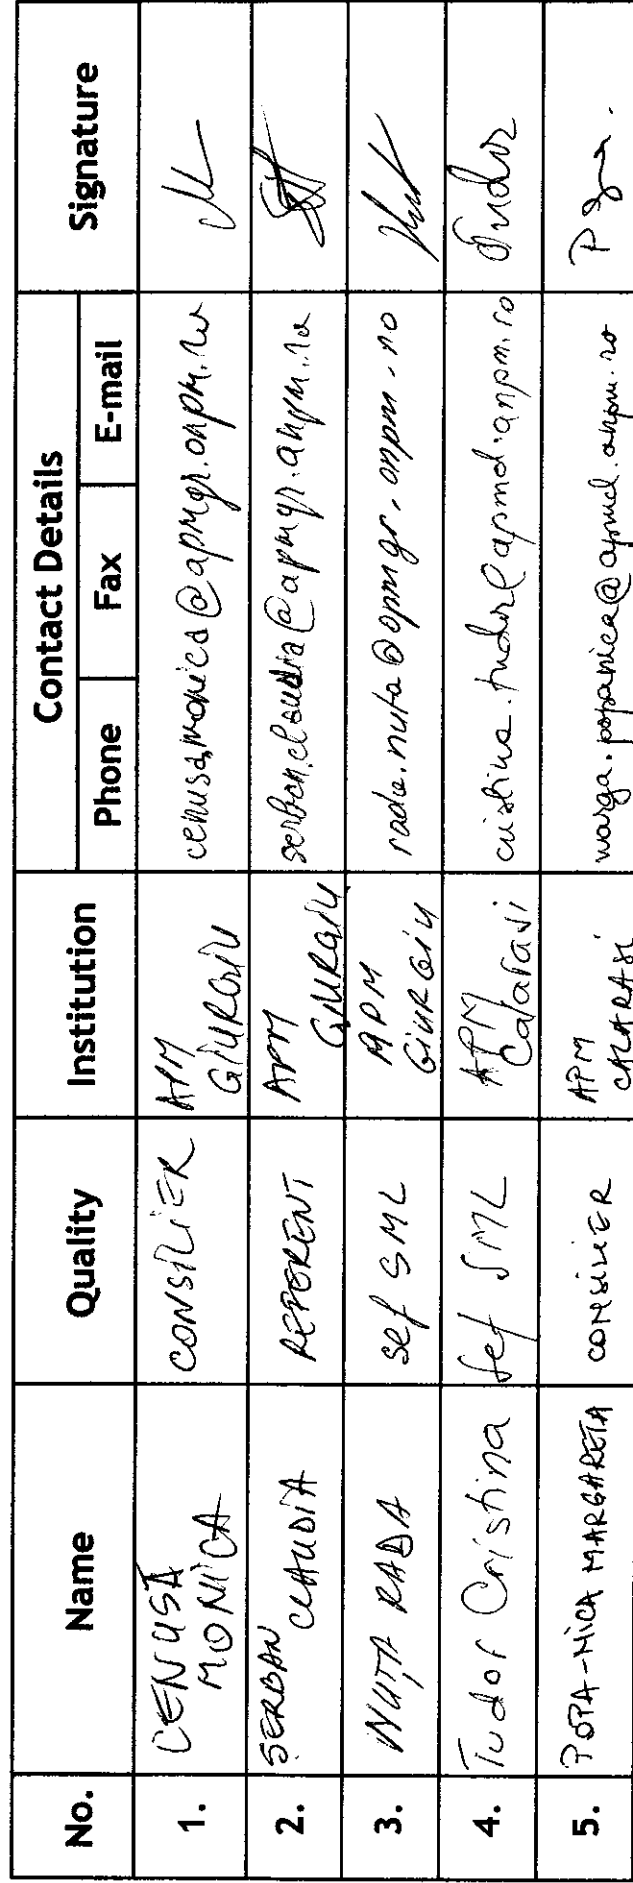 No. Name Quality Institution Contact Details Signature
Phone Fax E-mail
1. CENUSĂ MONICA CONSILIER APM GIURGIU cenusa.monica@apmgr.anpm.ro
2. SERBAN CLAUDIA REFERENT APM GIURGIU serban.claudia@apmgr.anpm.ro
3. NUȚĂ RADA sef SML APM GIURGIU rada.nuta@apmgr.anpm.ro
4. Tudor Cristina sef SML APM Calarasi cristina.tudor@apmcl.anpm.ro Tudor
5. POPA-NICA MARGARETA CONSILIER APM CALARASI